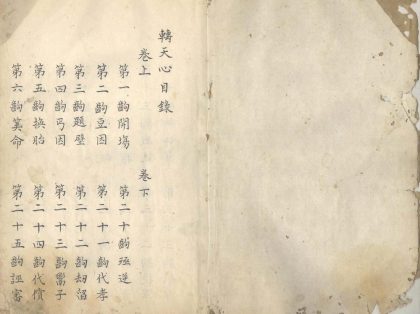 轉天心目錄
卷上
第一齣開場
第二齣豆因
第三齣題壁
第四齣弓因
第五齣換胎
第六齣筭命
卷下
第二十齣殛逆
第二十一齣代孝
第二十二齣劫留
第二十三齣鬻子
第二十四齣代償
第二十五齣誣審